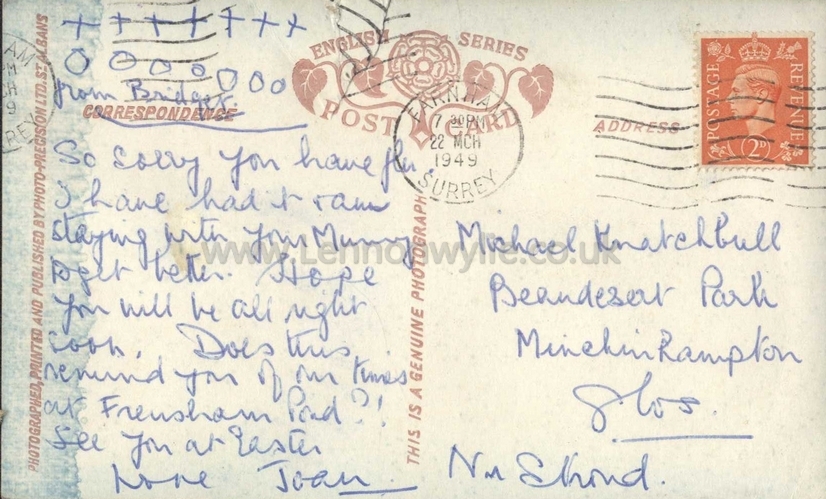 + + + + + + + +
O O O O O O O O
from Bridget.
CORRESPONDENCE
So sorry you have flu
I have had it & am
staying with your Mummy
to get better. Hope
you will be all right
soon. Does this
remind you of our times
at Frensham Pond?!
See you at Easter
Love Joan
ENGLISH SERIES
POST CARD
FARNHAM
7 30PM
22 MCH
1949
SURREY
ADDRESS
POSTAGE REVENUE
2D
Michael Knatchbull
Beaudesert Park
Minchinhampton
Glos.
Nr Stroud.
PHOTOGRAPHED, PRINTED AND PUBLISHED BY PHOTO-PRECISION LTD, ST. ALBANS
THIS IS A GENUINE PHOTOGRAPH
www.Lennoxwyllie.co.uk